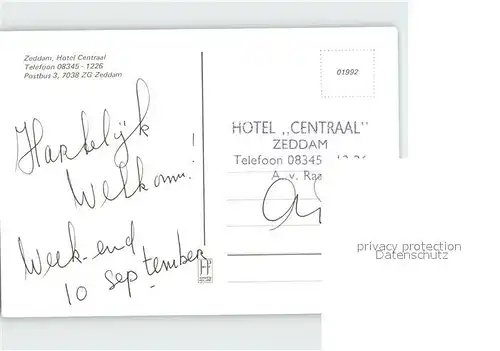 Zeddam, Hotel Centraal
Telefoon 08345 - 1226
Postbus 3, 7038 ZG Zeddam
01992
HOTEL „CENTRAAL"
ZEDDAM
Telefoon 08345
A. v. Raa
Hartelijk
Welkom!!
Week-end
10 september
privacy protection
Datenschutz